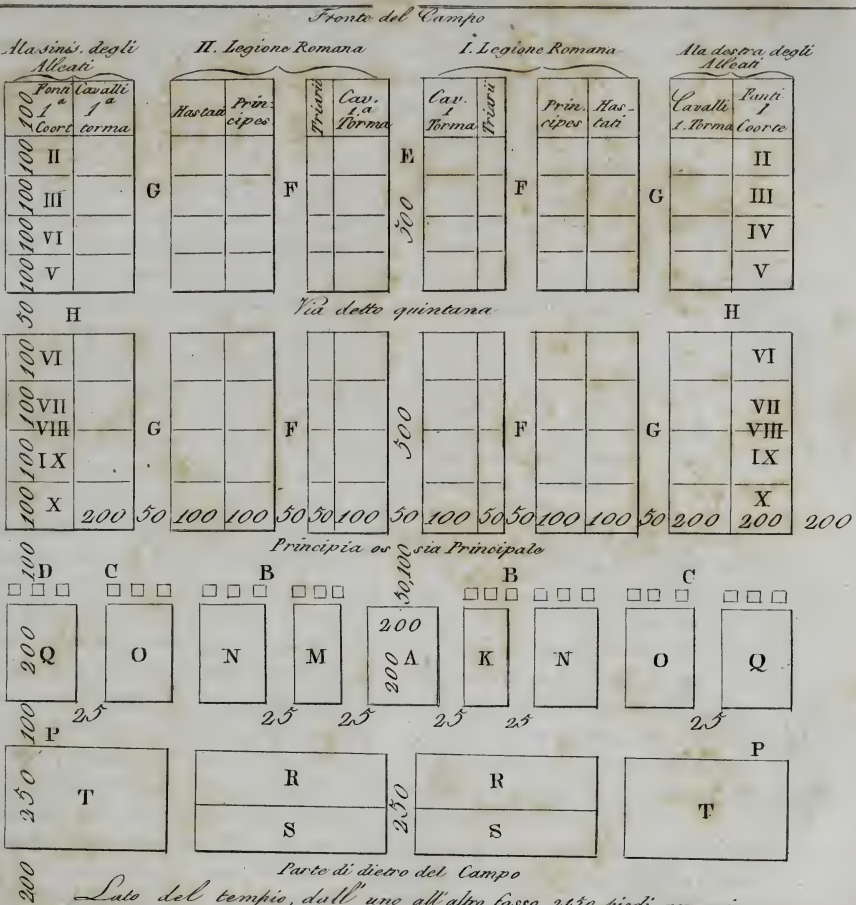 Fronte del Campo
Ala sinis. degli Alleati II. Legione Romana I. Legione Romana Ala destra degli Alleati
100 Fonti 1ª Coort Cavalli 1ª torma Hastati Prin- cipes Triarii Cav. 1.ª Torma Cav. 1 Torma Triarii Prin. cipes Has- tati Cavalli 1. Torma Fanti 1 Coorte
100 II E II
100 III G F 500 F G III
100 VI IV
100 V V
50 H Via detto quintana H
100 VI VI
100 VII 500 VII
VIII G F F G VIII
100 IX IX
100 X 200 50 100 100 50 50 100 50 100 50 50 100 100 50 200 X 200 200
Principia os sia Principale
100 50,100
D C B B C
200 Q O N M 200 200 A K N O Q
100 25 25 25 25 25 25
P P
250 T R 250 R T
S S
Parte di dietro del Campo
200 Lato del tempio, dall' uno all' altro fosso 2150 piedi